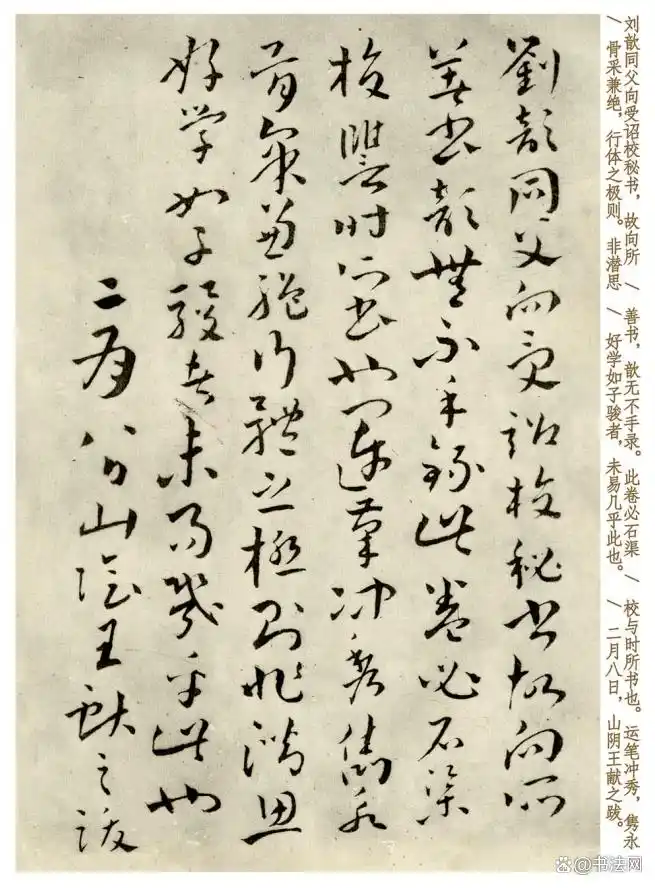 刘歆同父向受诏校秘书，故向所 / 善书，歆无不手录。此卷必石渠 / 校与时所书也。运笔冲秀，隽永
/ 骨采兼绝，行体之极则。非潜思 / 好学如子骏者，未易几乎此也。 / 二月八日，山阴王献之跋。
劉歆同父向受詔校秘书故向所
善书歆無不手錄此卷必石渠
校讐时所书也运筆冲秀雋永
骨采兼绝行體之極則非潛思
好学如子駿者未易幾乎此也
二月八日山阴王献之跋
@书法网